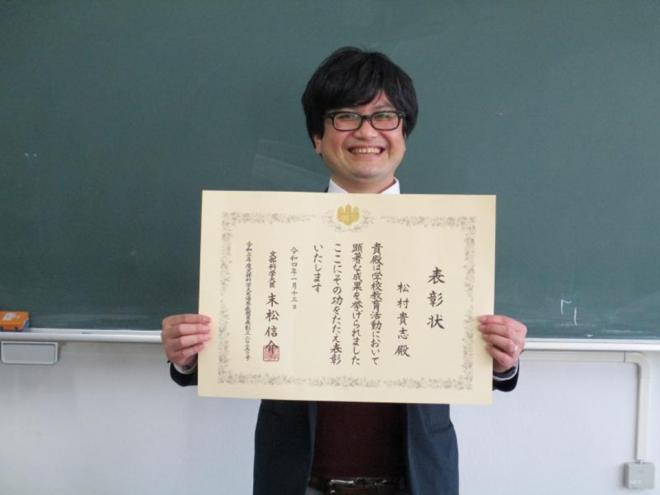 表彰状
松村貴志 殿
貴殿は学校教育活動において
顕著な成果を挙げられました
ここにその功をたたえ表彰
いたします
令和四年一月十三日
文部科学大臣 末松信介